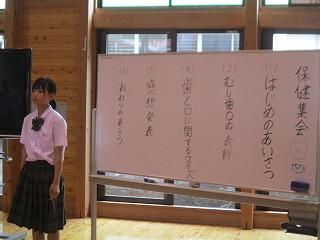 保健集会
(1) はじめのあいさつ
(2) むし歯〇の表彰
(3) 歯と口に関するクイズ
(4) 感想発表
(5) おわりのあいさつ